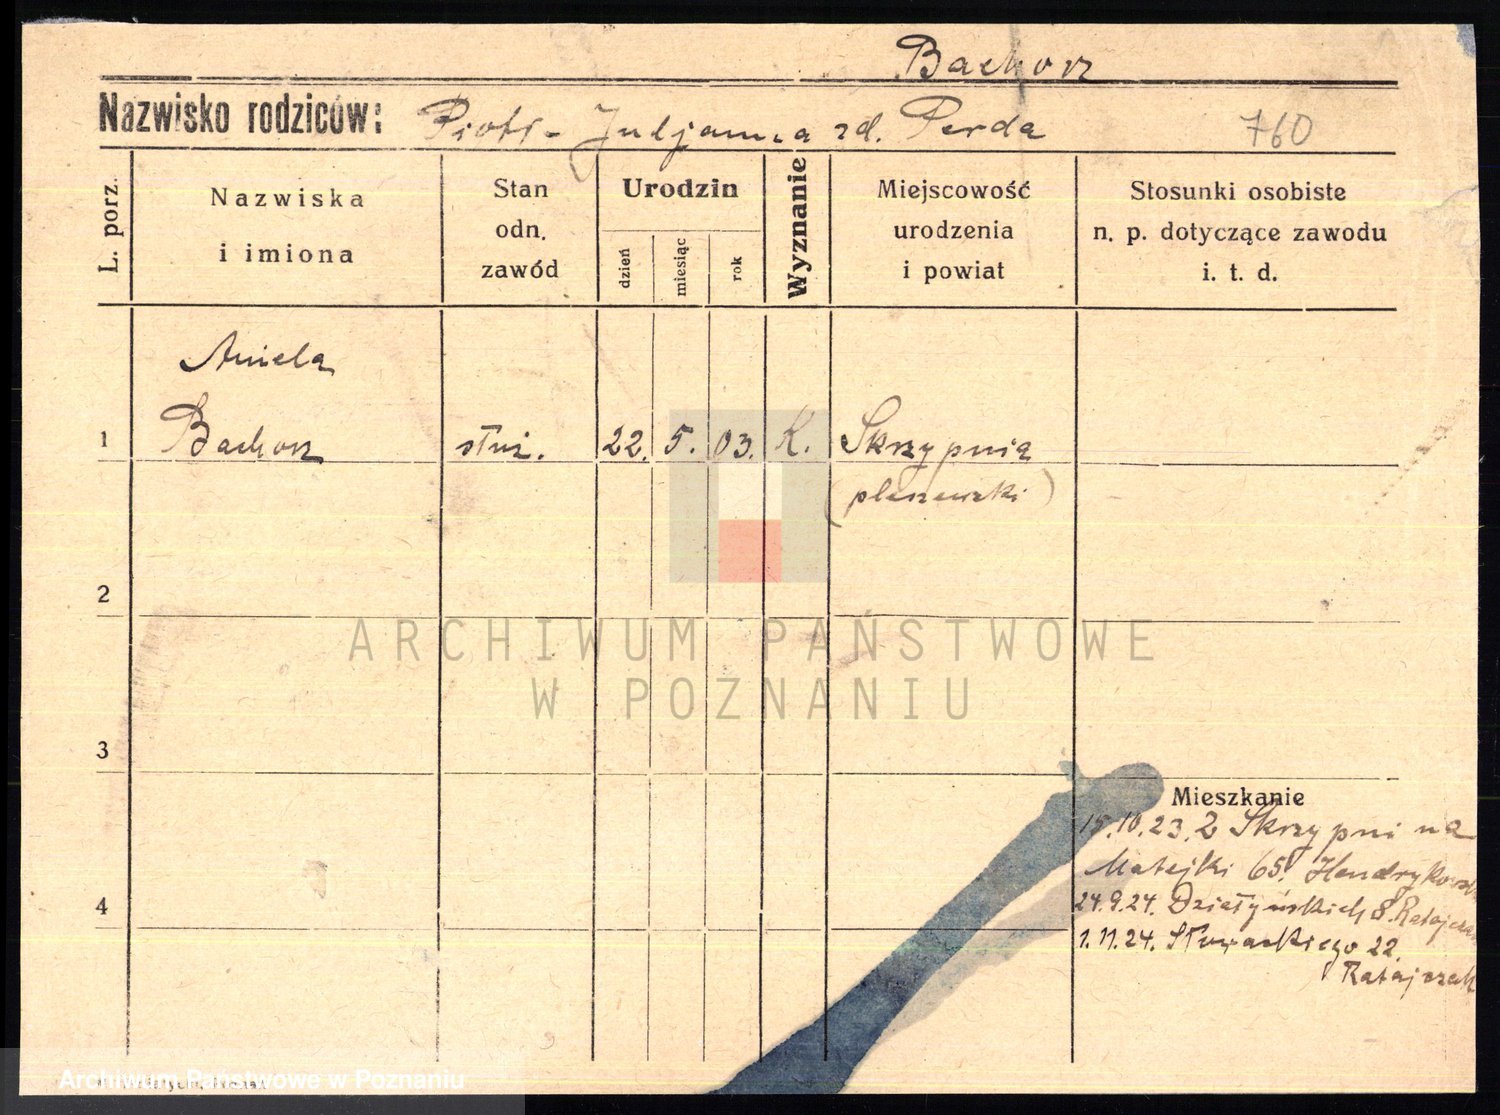 Bachorz
Nazwisko rodziców: Piotr - Juljanna zd. Perda 760
L. porz.
Nazwiska
i imiona
Stan
odn.
zawód
Urodzin
dzień
miesiąc
rok
Wyznanie
Miejscowość
urodzenia
i powiat
Stosunki osobiste
n. p. dotyczące zawodu
i. t. d.
Aniela
1 Bachorz służ. 22. 5. 03. K. Skrzypnia
(pleszewski)
2
ARCHIWUM PAŃSTWOWE
W POZNANIU
3
Mieszkanie
15.10.23. Z Skrzypni na
Matejki 65. Hendrykowsk
4
24.9.24. Działyńskich 8. Ratajczak
1.11.24. Słowackiego 22.
Ratajczak
Archiwum Państwowe w Poznaniu